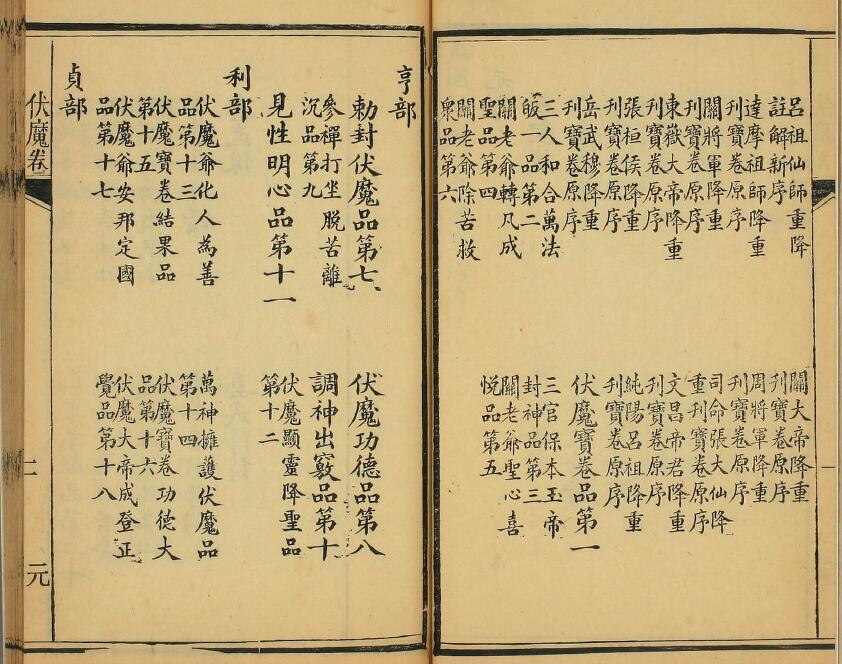 呂祖仙師重降
註解新序
關大帝降重
刊寶卷原序
達摩祖師降重
刊寶卷原序
周將軍降重
刊寶卷原序
關將軍降重
刊寶卷原序
司命張大仙降
重刊寶卷原序
東嶽大帝降重
刊寶卷原序
文昌帝君降重
刊寶卷原序
張桓侯降重
刊寶卷原序
純陽呂祖降重
刊寶卷原序
岳武穆降重
刊寶卷原序
伏魔寶卷品第一
三人和合萬法
皈一品第二
三官保本玉帝
封神品第三
關老爺轉凡成
聖品第四
關老爺聖心喜
悅品第五
關老爺除苦救
衆品第六
亨部
勅封伏魔品第七
伏魔功德品第八
參禪打坐脫苦離
沉品第九
調神出竅品第十
見性明心品第十一
伏魔顯靈降聖品
第十二
利部
伏魔爺化人為善
品第十三
萬神擁護伏魔品
第十四
伏魔寶卷結果品
第十五
伏魔寶卷功德大
品第十六
貞部
伏魔爺安邦定國
品第十七
伏魔大帝成登正
覺品第十八
伏魔卷
二
元